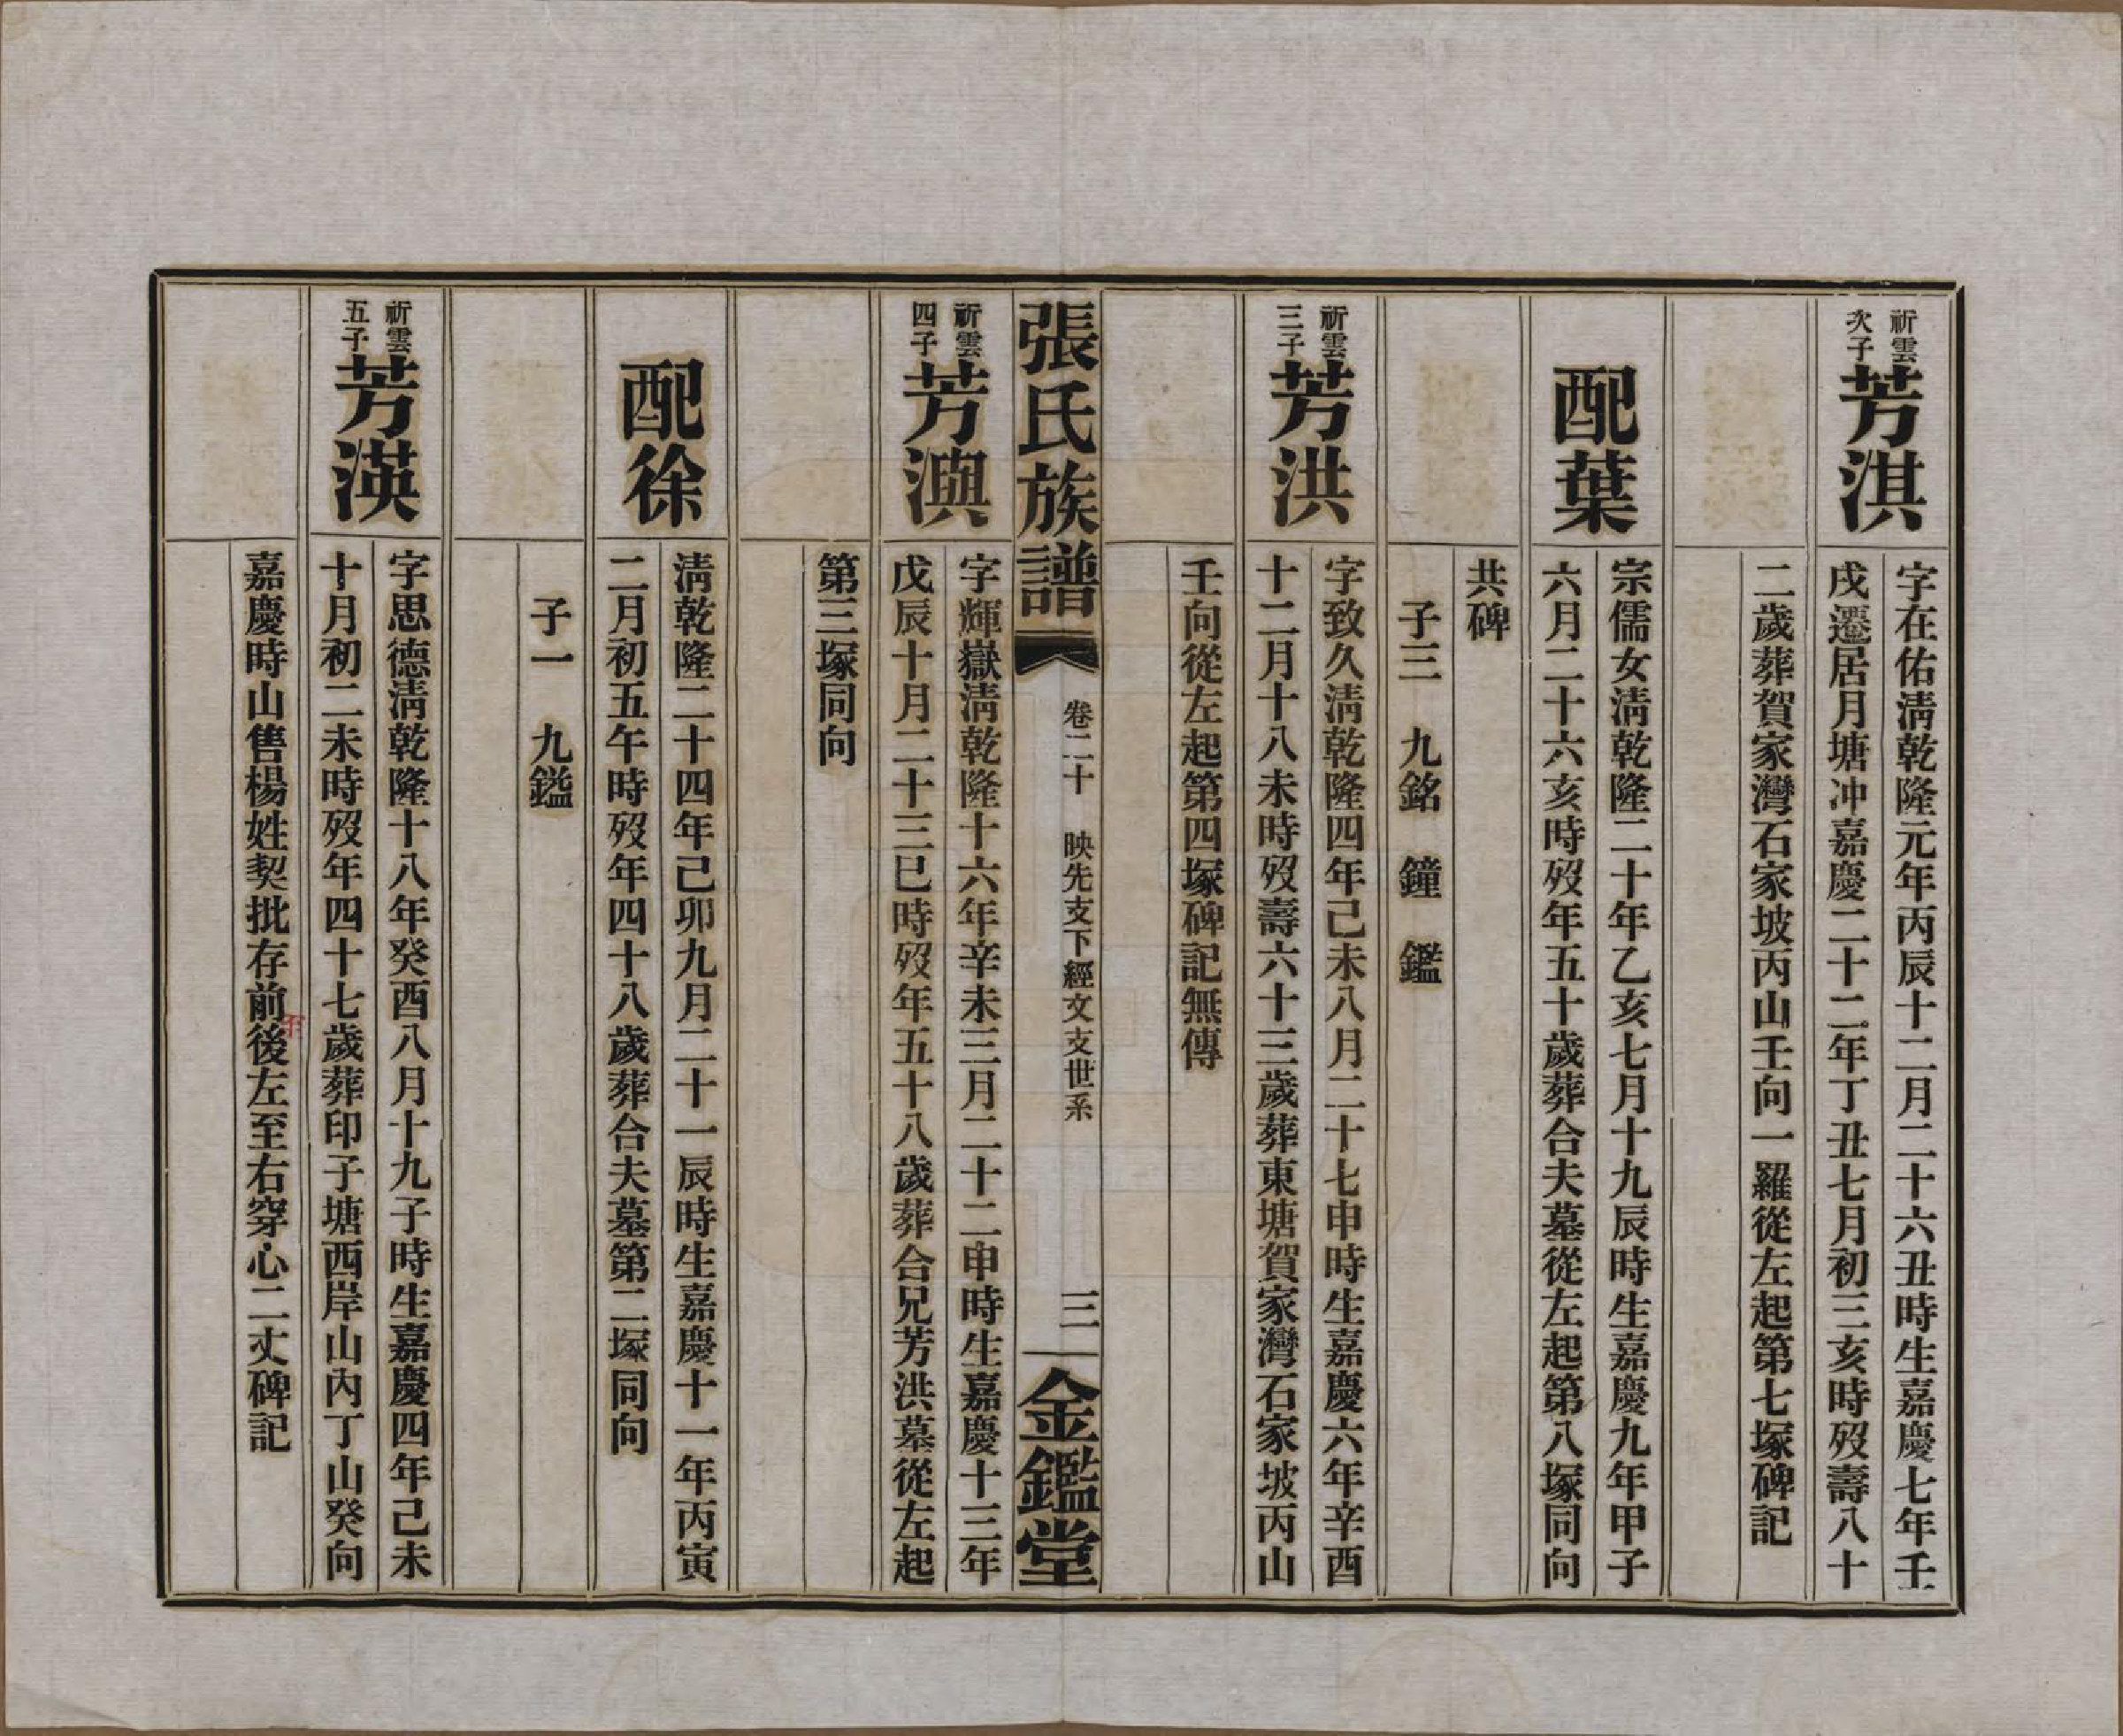 祈雲
次子
芳淇
字在佑淸乾隆元年丙辰十二月二十六丑時生嘉慶七年壬
戌遷居月塘冲嘉慶二十二年丁丑七月初三亥時歿壽八十
二歲葬賀家灣石家坡丙山壬向一羅從左起第七塚碑記
配葉
宗儒女淸乾隆二十年乙亥七月十九辰時生嘉慶九年甲子
六月二十六亥時歿年五十歲葬合夫墓從左起第八塚同向
共碑
子三　九銘　鐘　鑑
祈雲
三子
芳洪
字致久淸乾隆四年己未八月二十七申時生嘉慶六年辛酉
十二月十八未時歿壽六十三歲葬東塘賀家灣石家坡丙山
壬向從左起第四塚碑記無傳
張氏族譜
卷二十　映先支下經文支世系
三
金鑑堂
祈雲
四子
芳澳
字輝嶽淸乾隆十六年辛未三月二十二申時生嘉慶十三年
戊辰十月二十三巳時歿年五十八歲葬合兄芳洪墓從左起
第三塚同向
配徐
淸乾隆二十四年己卯九月二十一辰時生嘉慶十一年丙寅
二月初五午時歿年四十八歲葬合夫墓第二塚同向
子一　九鎰
祈雲
五子
芳渶
字思德淸乾隆十八年癸酉八月十九子時生嘉慶四年己未
十月初二未時歿年四十七歲葬印子塘西岸山內丁山癸向
嘉慶時山售楊姓契批存前後左至右穿心二丈碑記